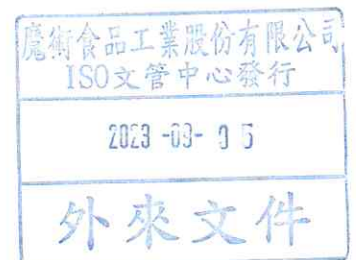 魔術食品工業股份有限公司
ISO文管中心發行
2023 -09- 05
外來文件